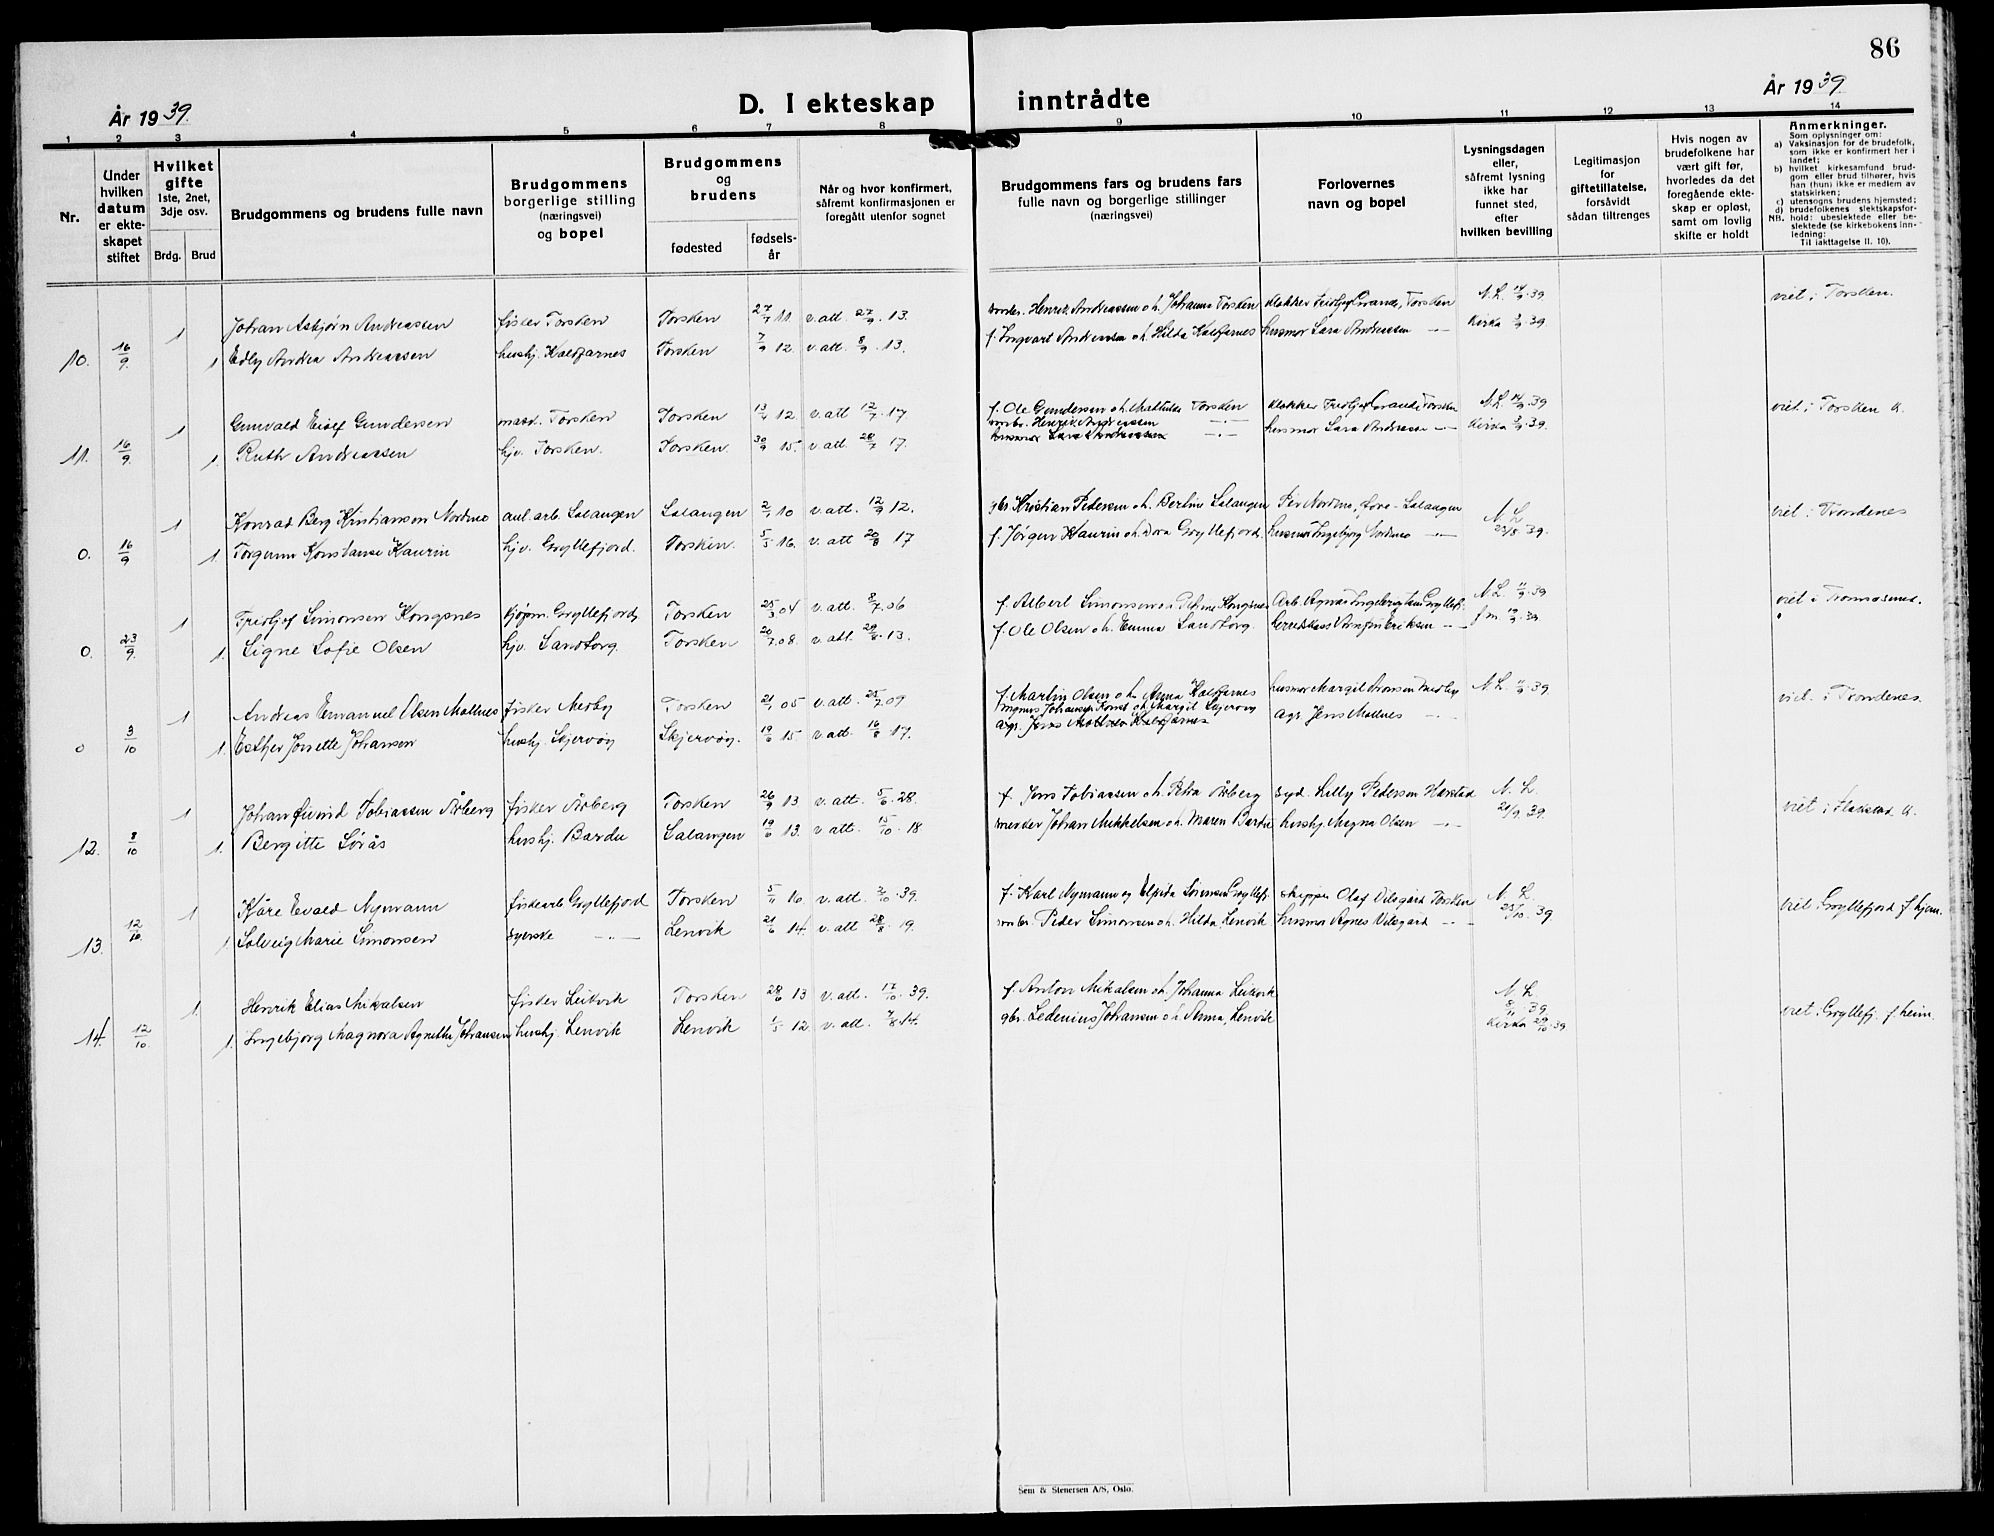 86
År 1939.
D. I ekteskap inntrådte
År 1939
1 2 3 4 5 6 7 8 9 10 11 12 13 14
Nr.
Under hvilken datum er ekteskapet stiftet
Hvilket gifte 1ste, 2net, 3dje osv.
Brdg. Brud
Brudgommens og brudens fulle navn
Brudgommens borgerlige stilling (næringsvei) og bopel
Brudgommens og brudens
fødested
fødselsår
Når og hvor konfirmert, såfremt konfirmasjonen er foregått utenfor sognet
Brudgommens fars og brudens fars fulle navn og borgerlige stillinger (næringsvei)
Forlovernes navn og bopel
Lysningsdagen eller, såfremt lysning ikke har funnet sted, efter hvilken bevilling
Legitimasjon for giftetillatelse, forsåvidt sådan tiltrenges
Hvis nogen av brudefolkene har vært gift før, hvorledes da det foregående ekteskap er opløst, samt om lovlig skifte er holdt
Anmerkninger.
Som oplysninger om:
a) Vaksinasjon for de brudefolk, som ikke er konfirmert her i landet;
b) hvilket kirkesamfund brudgom eller brud tilhører, hvis han (hun) ikke er medlem av statskirken;
c) utensogns brudens hjemsted;
d) brudefolkenes slektskapsforhold: ubeslektede eller beslektede (se kirkebokens innledning:
NB.
Til iakttagelse II. 10).
1 Johan Asbjørn Andreassen fisker Torsken Torsken 27/7 11. v. att. 27/9. 13. Henrik Andreassen o h. Johanna Torsken klokker Fridtjof Grande, Torsken N. L. 14/9. 39. viet i Torsken.
10. 16/9 1 Edly Andrea Andreassen hushj. Kaldfarnes Torsken 7/9 12. v. att. 8/9. 13. f. Ingvart Andreassen o h. Hilda Kaldfarnes husmor Sara Andreassen —"— Kirka 3/9. 39.
1 Gunvald Eiolf Gundersen Torsken Torsken 12 v. att 12/7. 17 f. Ole Gundersen o h. Mathilde Torsken klokker Fridtjof Grande Torsken N. L. 14/9. 39 viet i Torsken k.
Henrik Andreassen —"—
11. 16/9 1. Ruth Andreassen hjv. Torsken. Torsken. 30/9 15. v. att 28/7 17. husmor Sara Andreassen —"— husmor Sara Andreassen —"— Kirka 3/9. 39.
1 Konrad Berg Kristiansen Nordmo anl. arb. Salangen Salangen 2/1 10 v. att. 12/9 12. gbr. Kristian Pedersen o h. Bertine Salangen Nordmo, Salangen N. L. viet i Trondenes
0. 16/9 1. Torgunn Konstanse Kaurin hjv. Gryllefjord. Torsken. 5/5 16. v. att 20/8 17 f. Jørgen Kaurin o h. Dora Gryllefjord. husmor Ingebjorg Nordmo —"— 23/8. 39.
1 Fridtjof Simonsen Kongsnes Gryllefjord Torsken 25/3 04 v. att. 8/7. 06 f. Albert Simonsen o h. Petrine Kongsnes Arb. N. L. 11/9. 39 viet i Tromøsund.
0. 23/9. 1. Signe Sofie Olsen hjv. Sandtorg. Torsken 20/7 08. v. att. 29/8. 13. f. Ole Olsen o h. Emma Sandtorg. Arnfinn Eriksen —"—
1 Andreas Emanuel Olsen Mollnes fisker Medby Torsken 21/1 05 v. att. 25/7 09 f. Martin Olsen o h. Anna Kaldfarnes husmor Margit Aronsen Medby N. L. 11/9. 39 viet i Trondenes.
Johansen o h. Margit Skjervøy
0 3/10 1. Esther Jonette Johansen hushj. Skjervøy Skjervøy. 19/6 15 v. att. 16/6 17. agr. Jens Mollnes Kaldfarnes agr. Jens Mollnes —"—
1 Johan Øivind Tobiassen Årberg fisker Årberg Torsken 26/9 13 v. att. 5/6. 28. f. Jens Tobiassen o h. Petra Årberg syd. Lilly Pedersen Harstad N. L. viet i k.
12. 8/10 1. Bergitte Sørås hushj. Bardu Salangen 19/6 13. v att. 15/10. 18 Johan Mikkelsen o h. Maren Bardu hushj. Magna Olsen —"— 21/9. 39.
1 Kåre Evald Nymann fiskearb Gryllefjord Torsken 5/11 16 v. att. 2/10. 39. f. Karl Nymann og Elpida Sørensen Gryllefj. skipper Olaf Vilsgård Torsken N. L. viet i Gryllefjord f. hjem.
13. 12/10. 1. Solveig Marie Simonsen syerske —"— Lenvik 21/6 14. v. att 28/8. 19. Peder Simonsen o h. Hilda, Lenvik husmor Agnes Vilsgård —"— 25/10. 39
1 Henrik Elias Mikalsen fisker Leikvik Torsken 28/6 13 v. att. 17/10. 39. f. Anton Mikalsen o h. Johanna Leikvik N. L. viet i Gryllefj. f. heim.
14. 12/10. 1. Ingebjørg Magnora Agnethe Johansen hushj. Lenvik Lenvik 1/5 12. v. att. 7/8. 14. gbr. Ledenius Johansen o h Anna, Lenvik 8/11. 39. Kirka 29/10. 39
Sem & Stenersen A/S, Oslo.